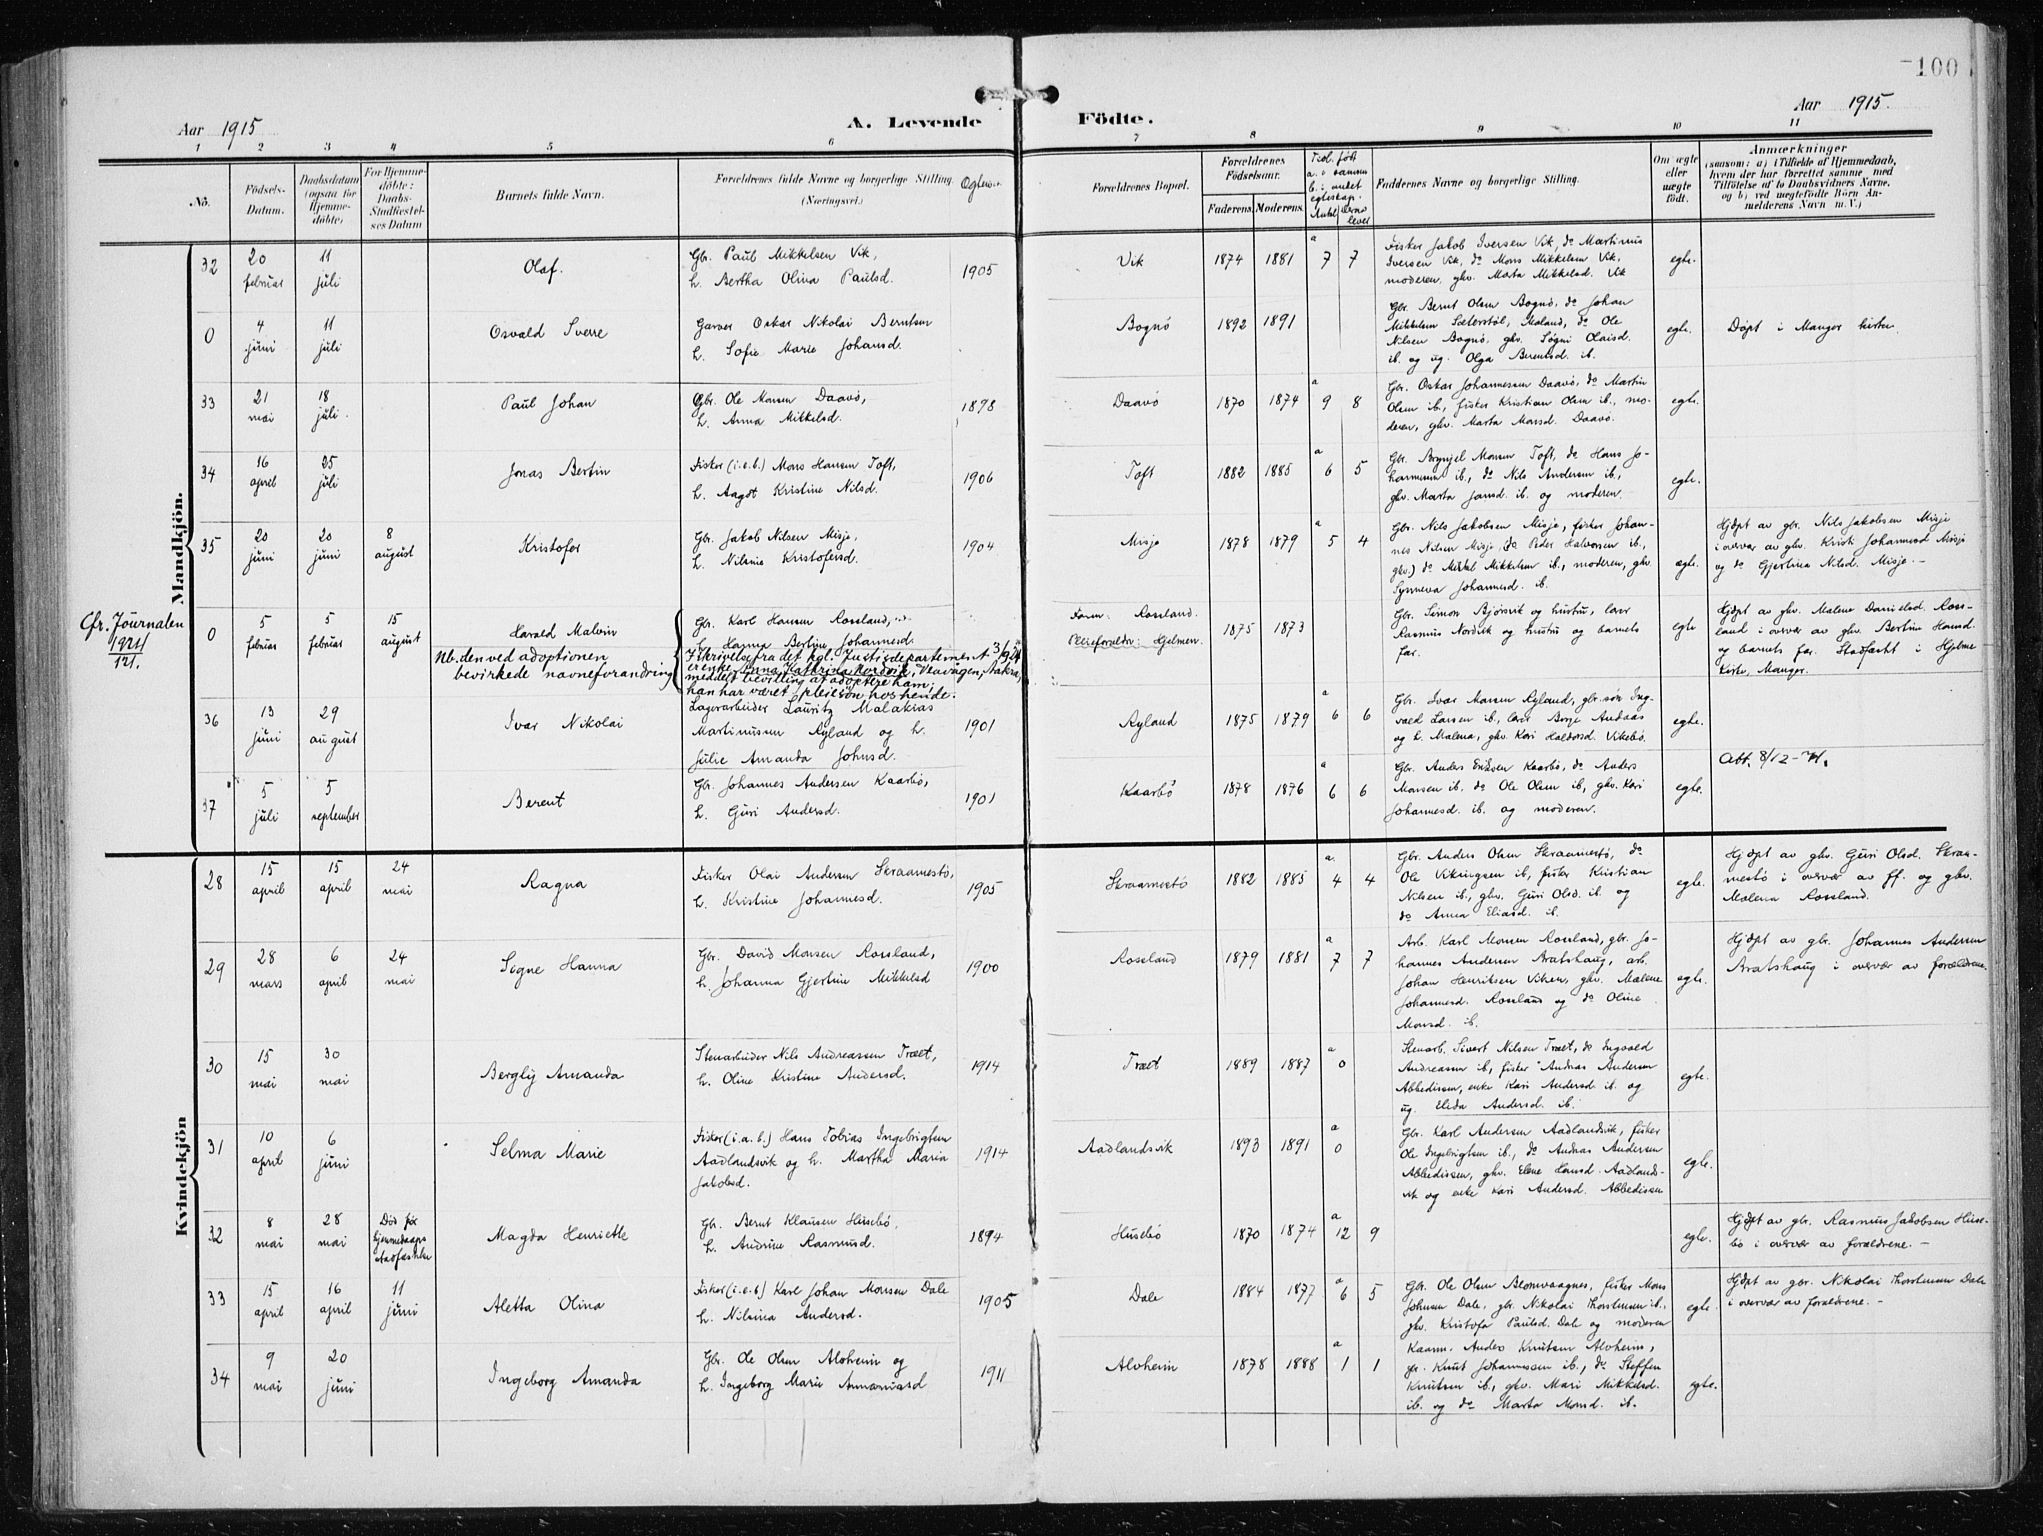 100
Aar 1915
A. Levende Födte.
Aar 1915.
1 2 3 4 5 6 7 8 9 10 11
No.
Födsels-
Datum.
Daabsdatum
(ogsaa for
Hjemme-
döbte)
For Hjemme-
döbte:
Daabs-
Stadfæstel-
ses Datum
Barnets fulde Navn.
Forældrenes fulde Navne og borgerlige Stilling.
(Næringsvei.)
Forældrenes Bopæl.
Forældrenes
Födselsaar.
Faderens. Moderens.
Tidl. født
Faddernes Navne og borgerlige Stilling.
Om ægte
eller
uægte
født.
Anmærkninger
(saasom: a) i Tilfælde af Hjemmedaab,
hvem der har forrettet samme med
Tilföielse af to Daabsvidners Navne,
og b) ved uægtefödte Börn An-
melderens Navn m. V.)
Mandkjön.
32
20
februar
11
juli
Olaf.
Gbr. Paul Mikkelsen Vik,
h. Bertha Olina Paulsd.
1905
Vik
1874 1881
a
7 7
Fisker Jakob Iversen Vik, do Martinus
Iversen Vik, do Mons Mikkelsen Vik,
moderen, ghv. Marta Mikkelsd. Vik
egte.
0
4
juni
11
juli
Osvald Sverre
Garver Oskar Nikolai Berntsen
h. Sofie Marie Johansd.
Bognø
1892 1891
Gbr. Bernt Olsen Bognø, do Johan
Mikkelsen Sæterstøl, Moland, do Ole
Nilsen Bognø, ghv. Søgni Olaisd.
ib. og ug. Olga Berentsd. ib.
egte.
Døpt i Manger kirke.
33
21
mai
18
juli.
Paul Johan
Gbr. Ole Monsen Daavø,
h. Anna Mikkelsd.
1898
Daavø
1870 1874
a
9 8
Gbr. Oskar Johannessen Daavø, do Martin
Olsen ib., fisker Kristian Olsen ib., mo-
deren, ghv. Marta Monsd. Daavø.
egte.
34
16
april
25
juli
Jonas Bertin
Fisker (i.e.b.) Mons Hansen Toft,
h. Aagot Kristine Nilsd.
1906
Toft
1882 1885
a
6 5
Gbr. Brynjel Monsen Toft, do Hans Jo-
hannessen ib., do Nils Andersen ib.,
ghv. Marta Jansd. ib. og moderen.
egte.
35
20
juni
20
juni
8
august
Kristofer
Gbr. Jakob Nilsen Misje,
h. Nilsine Kristofersd.
1904
Misje
1878 1879
a
5 4
Gbr. Nils Jakobsen Misje, fisker Johan-
nes Nilsen Misje, do Peder Halvorsen ib.,
ghv.) do Mikkel Mikkelsen ib., moderen, ghv.
Synneva Johannesd. ib.
ægte.
Hjdøpt av gbr. Nils Jakobsen Misje
i overvær av ghv. Kristi Johannesd Misje
og do Gjertina Nilsd. Misje. -
Cfr. Journalen
1924
121.
0
5
februar
5
februar
15
august
Harald Malvin
Gbr. Karl Hansen Rossland,
h. Hanna Bertine Johannesd.
Nb. den ved adoptionen
bevirkede navneforandring
I skrivelse fra det kgl. Justisdepartement 3/9 24
er enke Anna Kathrina Nordvik, Veavågen, Aakra,
meddelt bevilling at adoptere ham;
han har været pleiesøn hos hende.
Foren: Rossland.
Pleieforeldre: Hjelmen.
1875 1873
Gbr. Simon Bjørsvik og hustru, lærer
Rasmus Nordvik og hustru og barnets
far.
egte
Hjdøpt av ghv. Malene Danielsd. Ross-
land i overvær av ghv. Bertine Hansd.
og barnets far. Stadfæstet i Hjelme
Kirke, Manger.
36
13
juni
29
august
Ivar Nikolai
Lagerarbeider Lauritz Malakias
Martinussen Ryland og h.
Julie Amanda Johnsd.
1901
Ryland
1875 1879
a
6 6
Gbr. Ivar Monsen Ryland, gbr. søn Ing-
vald Larsen ib., lærer Børje Andaas
og h. Malena, ghv. Kari Haldorsd. Vikebø.
egte.
Att. 8/12-71.
37
5
juli
5
september
Berent
Gbr. Johannes Andersen Kaarbø,
h. Guri Andersd.
1901
Kaarbø
1878 1876
a
6 6
Gbr. Anders Eriksen Kaarbø, do Anders
Monsen ib. do Ole Olsen ib., ghv. Kari
Johannesd. ib. og moderen.
egte.
Kvindekjön
28
15
april
15
april
24
mai
Ragna
Fisker Olai Andersen Skraamestø,
h. Kristine Johannesd.
1905
Skraamestø
1882 1885
a.
4 4
Gbr. Anders Olsen Skraamestø, do
Ole Vikingsen ib, fisker Kristian
Nilsen ib., ghv. Guri Olsd. ib. og
do Anna Eliasd. ib.
egte.
Hjdøpt av ghv. Guri Olsd. Skraa-
mestø i overvær av ff. og ghv.
Malena Rossland.
29
28
mars
6
april
24
mai
Signe Hanna
Gbr. David Monsen Rossland,
h. Johanna Gjertine Mikkelsd
1900
Rossland
1879 1881
a
7 7
Arb. Karl Monsen Rossland, gbr. Jo-
hannes Andersen Bratshaug, arb.
Johan Henriksen Viken, ghv. Malene
Johannesd. Rossland og do Oline
Monsd. ib.
egte.
Hjdøpt av gbr. Johannes Andersen
Bratshaug i overvær av forældrene.
30
15
mai
30
mai
Bergljy Amanda
Stenarbeider Nils Andreassen Træet,
h. Oline Kristine Andersd.
1914
Træet
1889 1887
a
0
Stenarb. Sivert Nilsen Træet, do Ingvald
Andreassen ib, fisker Andreas Andersen
Abbedissen, enke Kari Andersd ib. og
ug. Elida Andersd. ib.
egte.
31
10
april
6
juni
Selma Marie
Fisker (i.a.b.) Hans Tobias Ingebrigtsen
Aadlandsvik og h. Martha Maria
Jakobsd.
1914
Aadlandsvik
1893 1891
a
0
Gbr. Karl Andersen Aadlandsvik, fisker
Ole Ingebrigtsen ib., do Andreas Andersen
Abbedissen, ghv. Elene Hansd. Aadlands-
vik og enke Kari Andersd. Abbedissen
egte.
32
8
mai
28
mai
Død før
hjemmedaaps
stadfæstelse
Magda Henriette
Gbr. Bernt Klausen Husebø,
h. Andrine Rasmusd.
1894
Husebø
1870 1874
a
12 9
egte.
Hjdøpt av gbr. Rasmus Jakobsen Huse-
bø i overvær av forældrene. -
33
15
april
16
april
11
juni
Aletta Olina
Fisker (i.e.b) Karl Johan Monsen Dale
h. Nilsina Andersd.
1905
Dale
1884 1877
a
6 5
Gbr. Ole Olsen Blomvaagnes, fisker Mons
Johnsen Dale, gbr. Nikolai Thorstensen ib.,
ghv. Kristofa Paulsd. Dale og moderen
egte.
Hjdøpt av gbr. Nikolai Thorstensen Dale
i overvær av forældrene. -
34
9
mai
20
juni
Ingeborg Amanda
Gbr. Ole Olsen Alvheim og
h. Ingeborg Marie Annaniasd
1911
Alvheim
1878 1888
a
1 1
Kaarm. Anders Knutsen Alvheim,
gr. Knut Johannessen ib., do Steffen
Knutsen ib., ghv. Mari Mikkelsd.
ib. og do Marta Monsd. ib.
egte.